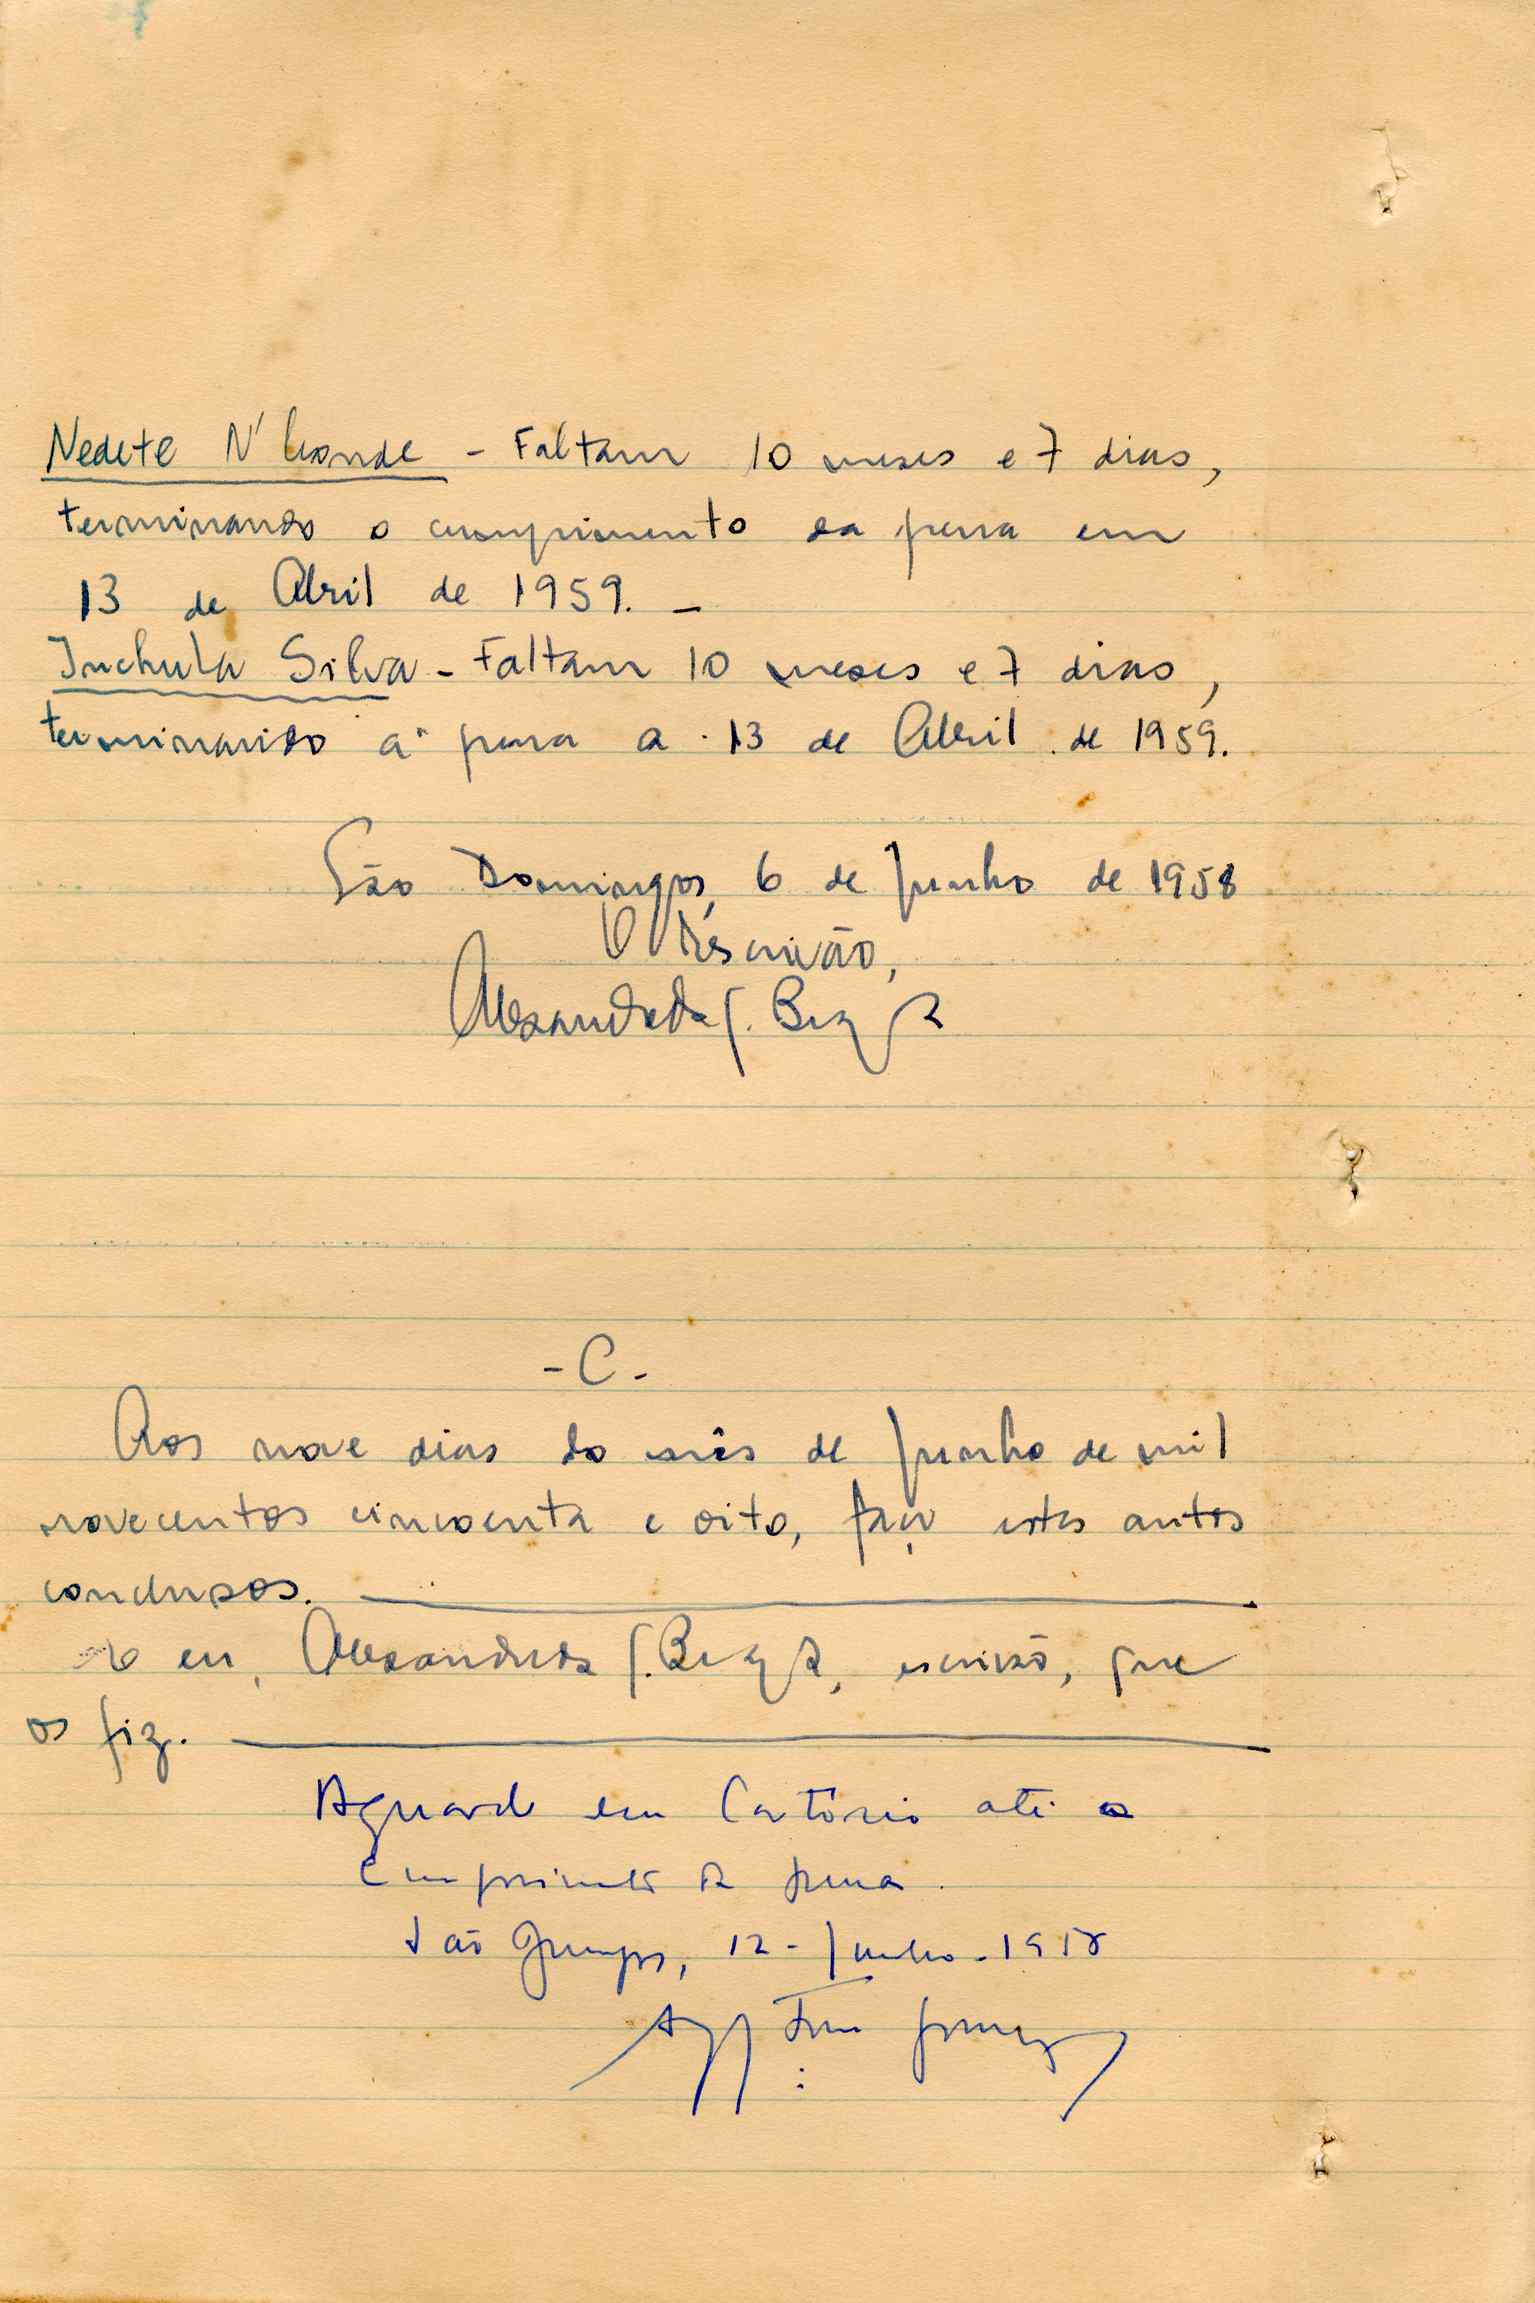 Nedete N' - Faltam 10 meses e 7 dias,
terminando o cumprimento da pena em
13 de Abril de 1959. -
Inchula Silva - Faltam 10 meses e 7 dias,
terminando a pena a 13 de Abril de 1959.
São Domingos, 6 de Junho de 1958
O Escrivão,
-C-
Aos nove dias do mês de Junho de mil
novecentos cincoenta e oito, faço estes autos
conclusos.
eu, escrivão, que
os fiz.
Aguarde em Cartório até o
cumprimento da pena.
São Domingos, 12-Junho-1958